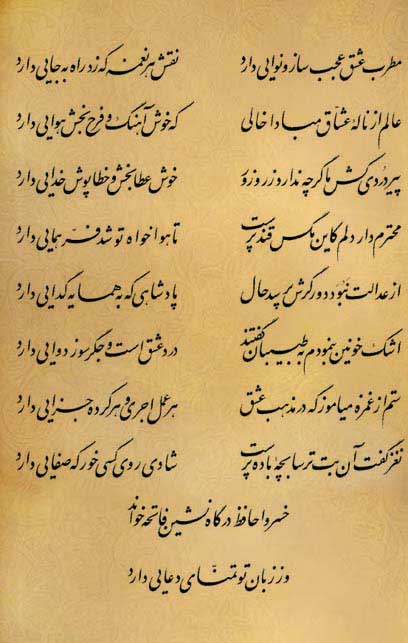 مطرب عشق عجب ساز و نوایی دارد نقش هر نغمه که زد راه به جایی دارد
عالم از ناله عشاق مبادا خالی که خوش آهنگ و فرح بخش هوایی دارد
پیر دردی کش ما گرچه ندارد زر و زور خوش عطابخش و خطاپوش خدایی دارد
محترم دار دلم کاین مگس قندپرست تا هواخواه تو شد فر همایی دارد
از عدالت نبود دور گرش پرسد حال پادشاهی که به همسایه گدایی دارد
اشک خونین بنمودم به طبیبان گفتند درد عشق است و جگرسوز دوایی دارد
ستم از غمزه میاموز که در مذهب عشق هر عمل اجری و هر کرده جزایی دارد
نغز گفت آن بت ترسابچه باده پرست شادی روی کسی خور که صفایی دارد
خسروا حافظ درگاه نشین فاتحه خواند
وز زبان تو تمنای دعایی دارد